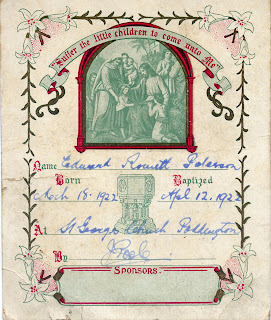 "Suffer the little children to come unto Me"
Name Edward Rowitt Peterson
Born Baptized
March 18. 1922 Apl 12. 1922
At St George's Church Paddington
By
Sponsors.